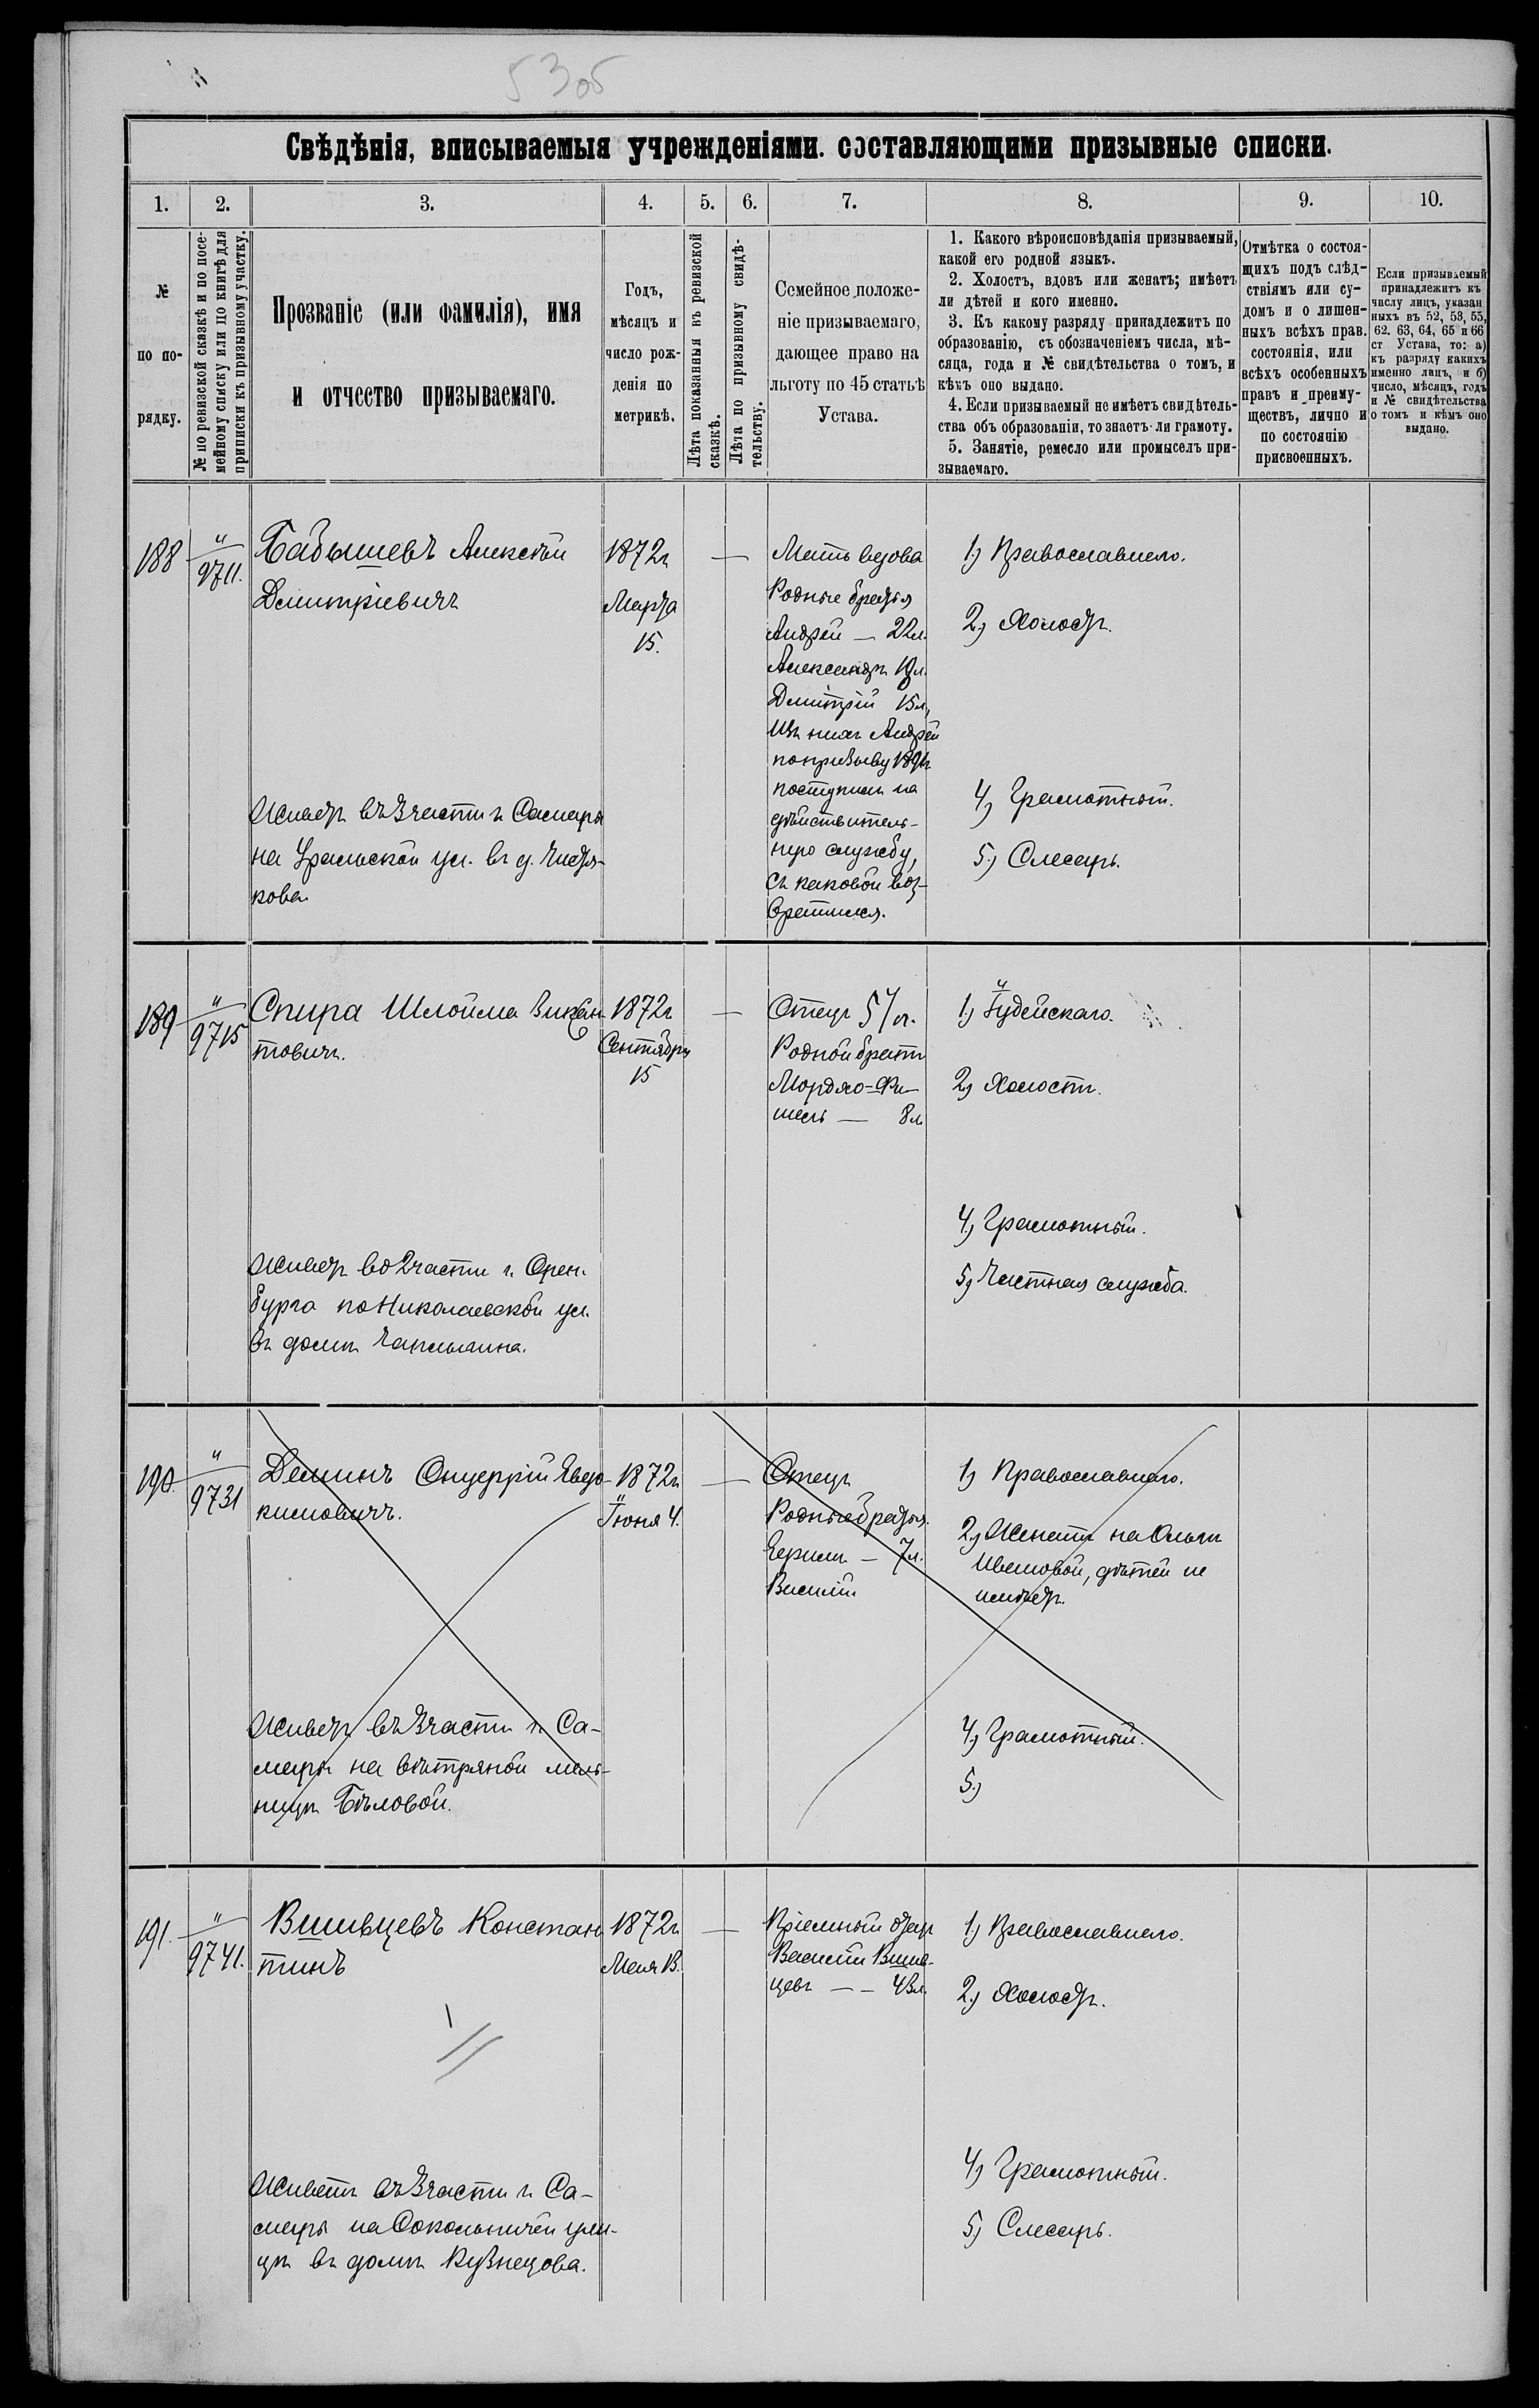 53об
Свѣдѣнія, вписываемыя учрежденіями. составляющими призывные списки.
1. 2. 3. 4. 5. 6. 7. 8. 9. 10.
№
по по-
рядку.
№ по ревизской сказкѣ и по посе-
мейному списку или по книгѣ для
приписки къ призывному участку.
Прозваніе (или фамилія), имя
и отчество призываемаго.
Годъ,
мѣсяцъ и
число рож-
денія по
метрикѣ.
Лѣта показанныя въ ревизской
сказкѣ.
Лѣта по призывному свидѣ-
тельству.
Семейное положе-
ніе призываемаго,
дающее право на
льготу по 45 статьѣ
Устава.
1. Какого вѣроисповѣданія призываемый,
какой его родной языкъ.
2. Холостъ, вдовъ или женатъ; имѣетъ
ли дѣтей и кого именно.
3. Къ какому разряду принадлежитъ по
образованію, съ обозначеніемъ числа, мѣ-
сяца, года и № свидѣтельства о томъ, и
кѣмъ оно выдано.
4. Если призываемый не имѣетъ свидѣтель-
ства объ образованіи, то знаетъ-ли грамоту.
5. Занятіе, ремесло или промыселъ при-
зываемаго.
Отмѣтка о состоя-
щихъ подъ слѣд-
ствіямъ или су-
домъ и о лишен-
ныхъ всѣхъ прав.
состоянія, или
всѣхъ особенныхъ
правъ и преиму-
ществъ, лично и
по состоянію
присвоенныхъ.
Если призываемый
принадлежитъ къ
числу лицъ, указан
ныхъ въ 52, 53, 55,
62. 63, 64, 65 и 66
ст Устава, то: а)
къ разряду какихъ
именно лицъ, и б)
число, мѣсяцъ, годъ
и № свидѣтельства
о томъ и кѣмъ оно
выдано.
188
"
9711.
Бабышевъ Алексѣй
Дмитріевичъ
Живетъ въ 3 части г. Самары
на Уральской ул. въ д.
кова
1872г
Марта
15.
—
Мать вдова
Родные братья
Андрей — 22л.
Александръ 19л.
Дмитрій 15л,
Изъ нихъ Андрей
по призыву 1891г
поступилъ на
дѣйствитель-
ную службу,
съ каковой воз-
вратился.
1) Православнаго.
2) Холостъ.
4) Грамотный.
5) Слесарь.
189
"
9715
Спира Шлойма
товичъ.
Живетъ во 2 части г. Орен-
бурга по Николаевской ул.
въ домѣ
1872г
Сентября
15
—
Отецъ 57л.
Родной братъ
Мордко-Фи-
шель — 8л
1) Іудейскаго.
2) Холостъ.
4) Грамотный.
5) Частная служба.
190.
"
9731
Деминъ Онуфрій Евдо-
кимовичъ.
Живетъ въ 3 части г. Са-
мары на вѣтряной мель-
ницѣ Бѣловой.
1872г
Іюня 4.
—
Отецъ
Родные братья.
Герасим — 7л.
Василій
1) Православнаго.
2) Женатъ на Ольгѣ
Ивановой, дѣтей не
имѣетъ.
4) Грамотный.
5)
191.
"
9741.
Вшивцевъ Констан
тинъ
Живетъ въ 3 части г. Са-
мары на Сокольничей ули-
цѣ въ домѣ Кузнецова.
1872г
Мая 13.
—
Пріемный отецъ
Василій Вшив-
цевъ — — 43л.
1) Православнаго.
2) Холостъ.
4) Грамотный.
5) Слесарь.